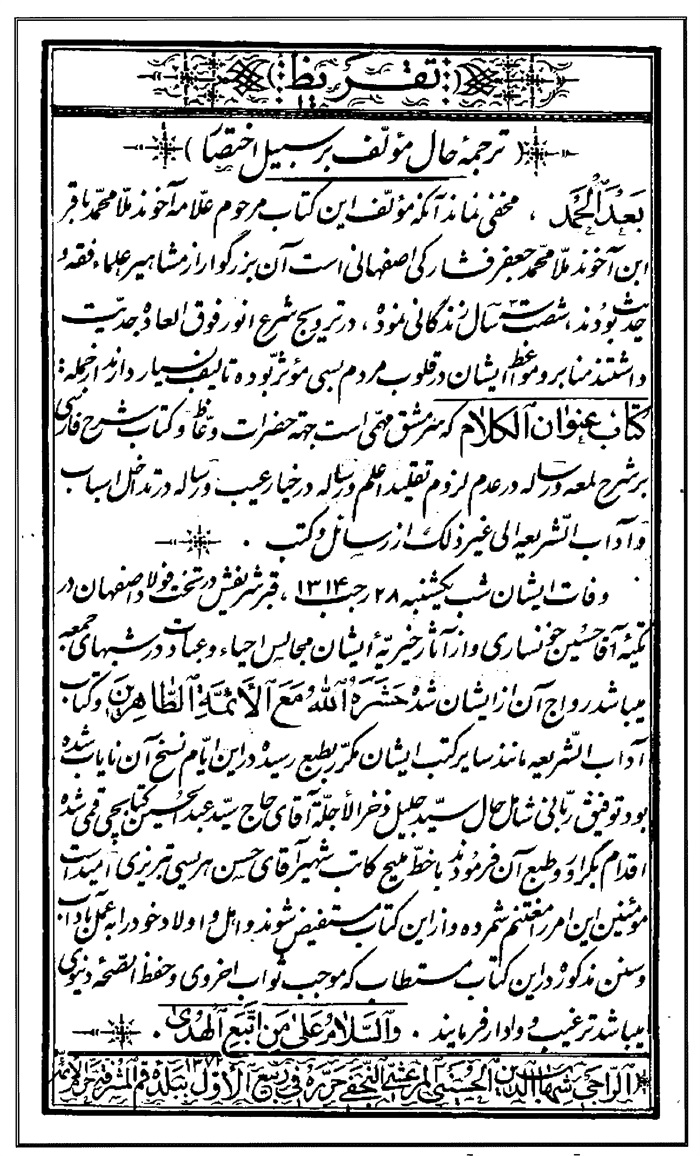 تقریظ
(ترجمهٔ حال مؤلّف بر سبیل اختصار)
بَعْدَ الْحَمْدِ ، مخفی نماند آنکه مؤلّف این کتاب مرحوم علّامه آخوند ملّا محمّد باقر
ابن آخوند ملّا محمّد جعفر فشارکی اصفهانی است آن بزرگوار از مشاهیر علماء فقه و
حدیث بودند، شصت سال زندگانی نموده ، در ترویج شرع انور فوق العاده جدیّت
داشتند منابر و مواعظ ایشان در قلوب مردم بسی مؤثّر بوده تألیف بسیار دارند از جمله :
کتاب عنوان الکلام که سرمشق مهمّی است جهة حضرات وعّاظ و کتاب شرح فارسی
بر شرح لمعه و رساله در عدم لزوم تقلید اعلم و رساله در خیار عیب و رساله در تداخل اسباب
و آداب الشّریعه الی غیر ذلک از رسائل و کتب .
وفات ایشان شب یکشنبه ۲۸ رجب ۱۳۱۴ ، قبر شریفش در تخت فولاد اصفهان در
تکیهٔ آقا حسین خونساری و از آثار خیریّهٔ ایشان مجالس احیاء و عبادت در شبهای جمعه
میباشد رواج آن از ایشان شده حَشَرَهُ اللهُ مَعَ الْأَئِمَّةِ الطَّاهِرِینَ و کتاب
آداب الشّریعه مانند سایر کتب ایشان مکرّر بطبع رسیده در این ایّام نسخ آن نایاب شده
بود توفیق ربّانی شامل حال سیّد جلیل ذخر الأجلّة آقای حاج سیّد عبد الحسین کتابچی قمی شده
اقدام بگراور و طبع آن فرمودند با خطّ ملیح کاتب شهیر آقای حسن هریسی تبریزی امید است
مؤمنین این امر را مغتنم شمرده و از این کتاب مستفیض شوند و اهل و اولاد خود را به عمل بآداب
و سنن مذکوره در این کتاب مستطاب که موجب ثواب اخروی و حفظ الصّحه دنیوی
میباشد ترغیب و وادار فرمایند . وَالسَّلَامُ عَلَی مَنِ اتَّبَعَ الْهُدَی .
الرّاجی شهاب الدین الحسینی المرعشی النجفی حرّره فی ربیع الأوّل ۱۳۷۲ ببلدة قم المشرّفة حرم الأئمّة